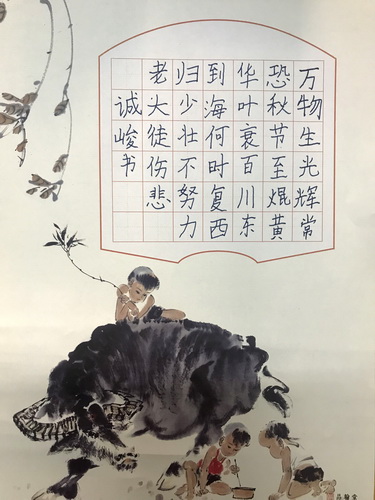 万物生光辉常
恐秋节至焜黄
华叶衰百川东
到海何时复西
归少壮不努力
老大徒伤悲
诚峻书